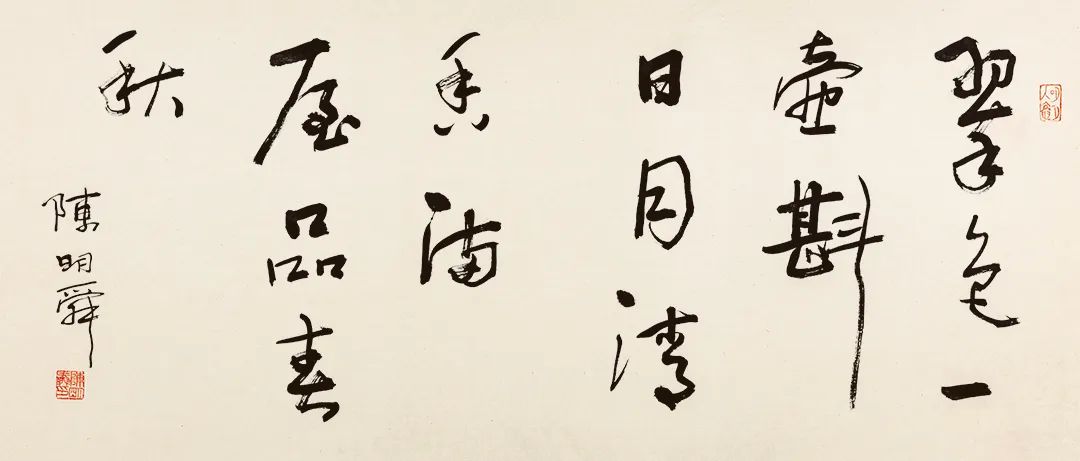 翠色一
壺斟
日月清
香滿
屋品春
秋
陳明舜